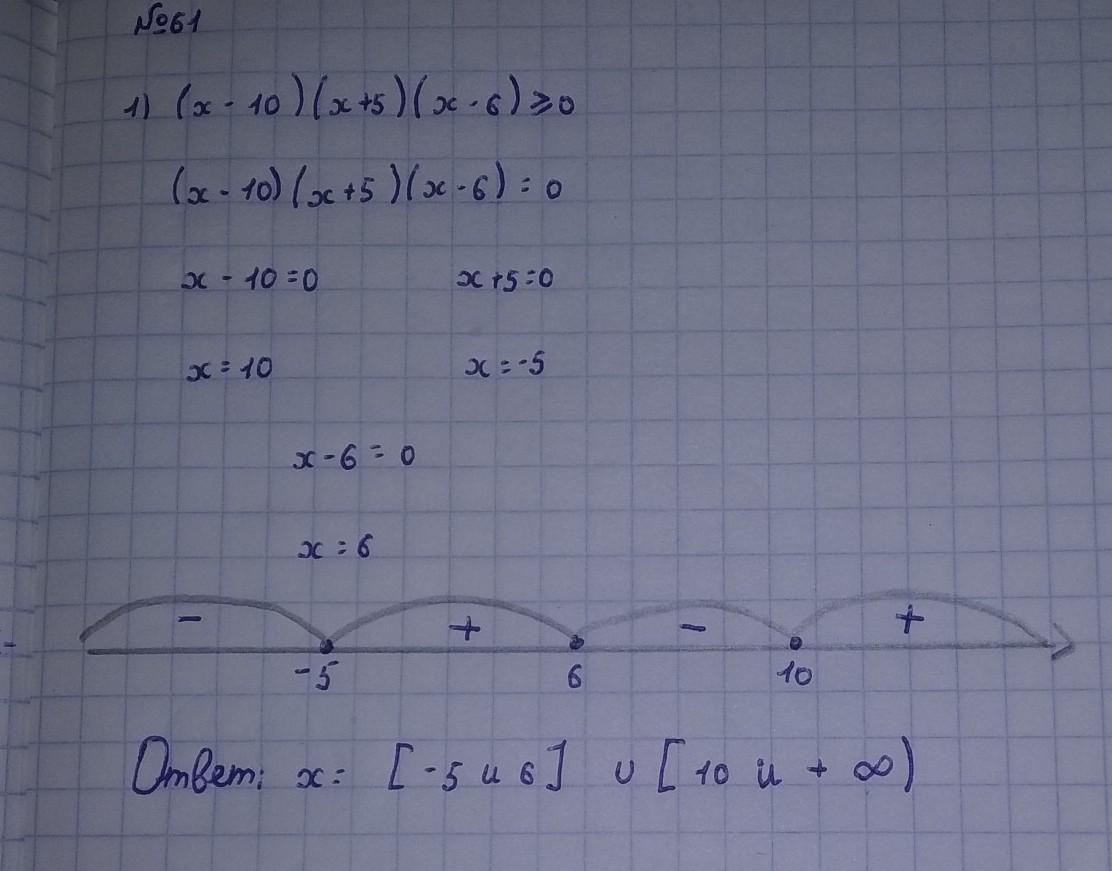 №61
1) (x - 10)(x+5)(x - 6) ⩾ 0
(x - 10)(x+5)(x - 6) = 0
x - 10 = 0 x+5=0
x = 10 x = -5
x - 6 = 0
x = 6
- + - +
-5 6 10
Ответ: x = [-5 и 6] ∪ [10 и + ∞)